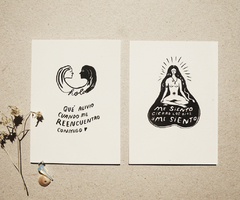 hola
QUÉ ALIVIO
CUANDO ME
REENCUENTRO
CONMIGO
MI SIENTO
CIERRO LOS OJOS
MI SIENTO